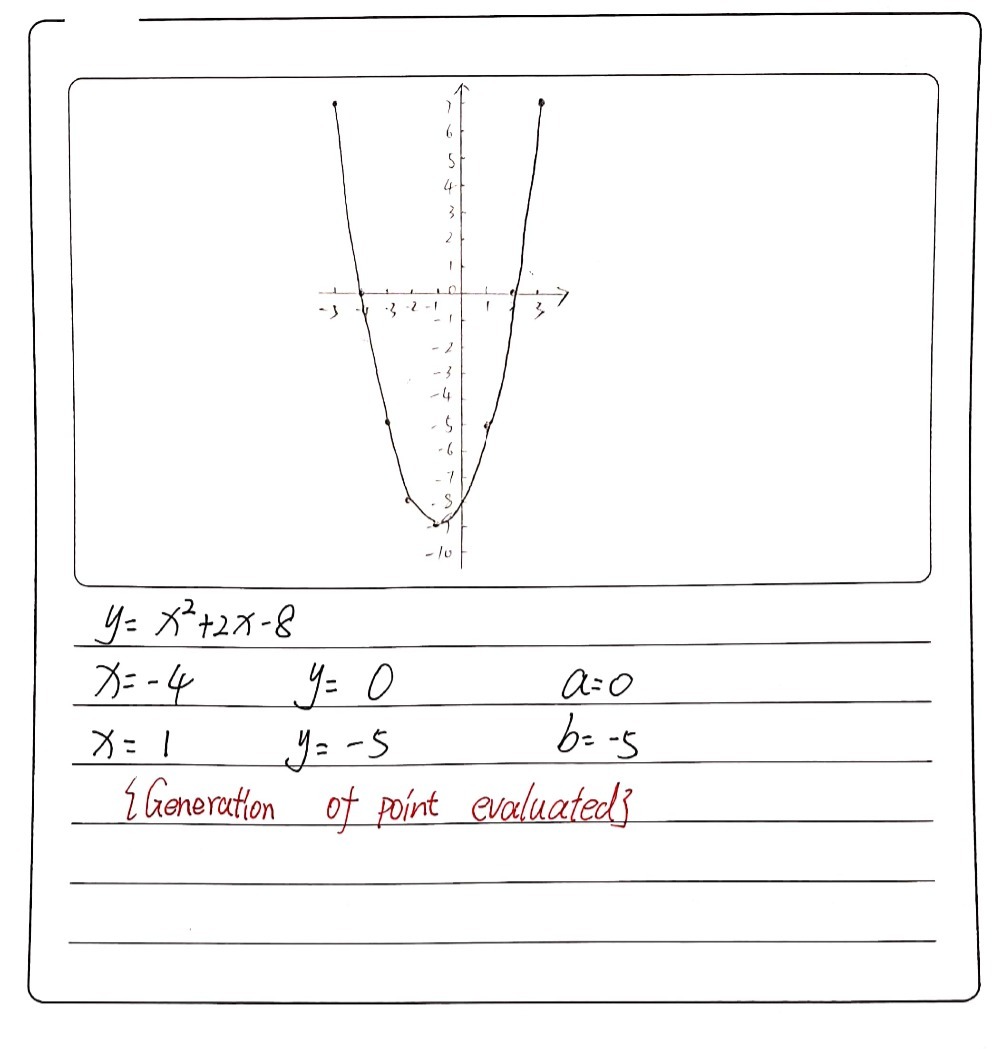 7
6
5
4
3
2
1
0
-5 -4 -3 -2 -1 1 2 3
-1
-2
-3
-4
-5
-6
-7
-8
-9
-10
y= x²+2x-8
x=-4 y= 0 a=0
x= 1 y= -5 b= -5
{Generation of point evaluated}